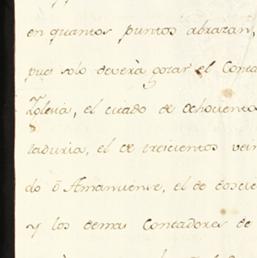 en quantos puntos abrazan,
pues solo deveria gozar el Conta
Zoleta, el citado de Ochocientos
taduria, el de treicientos vein
do õ Amanuense, el de doscie
y los demas Contadores de